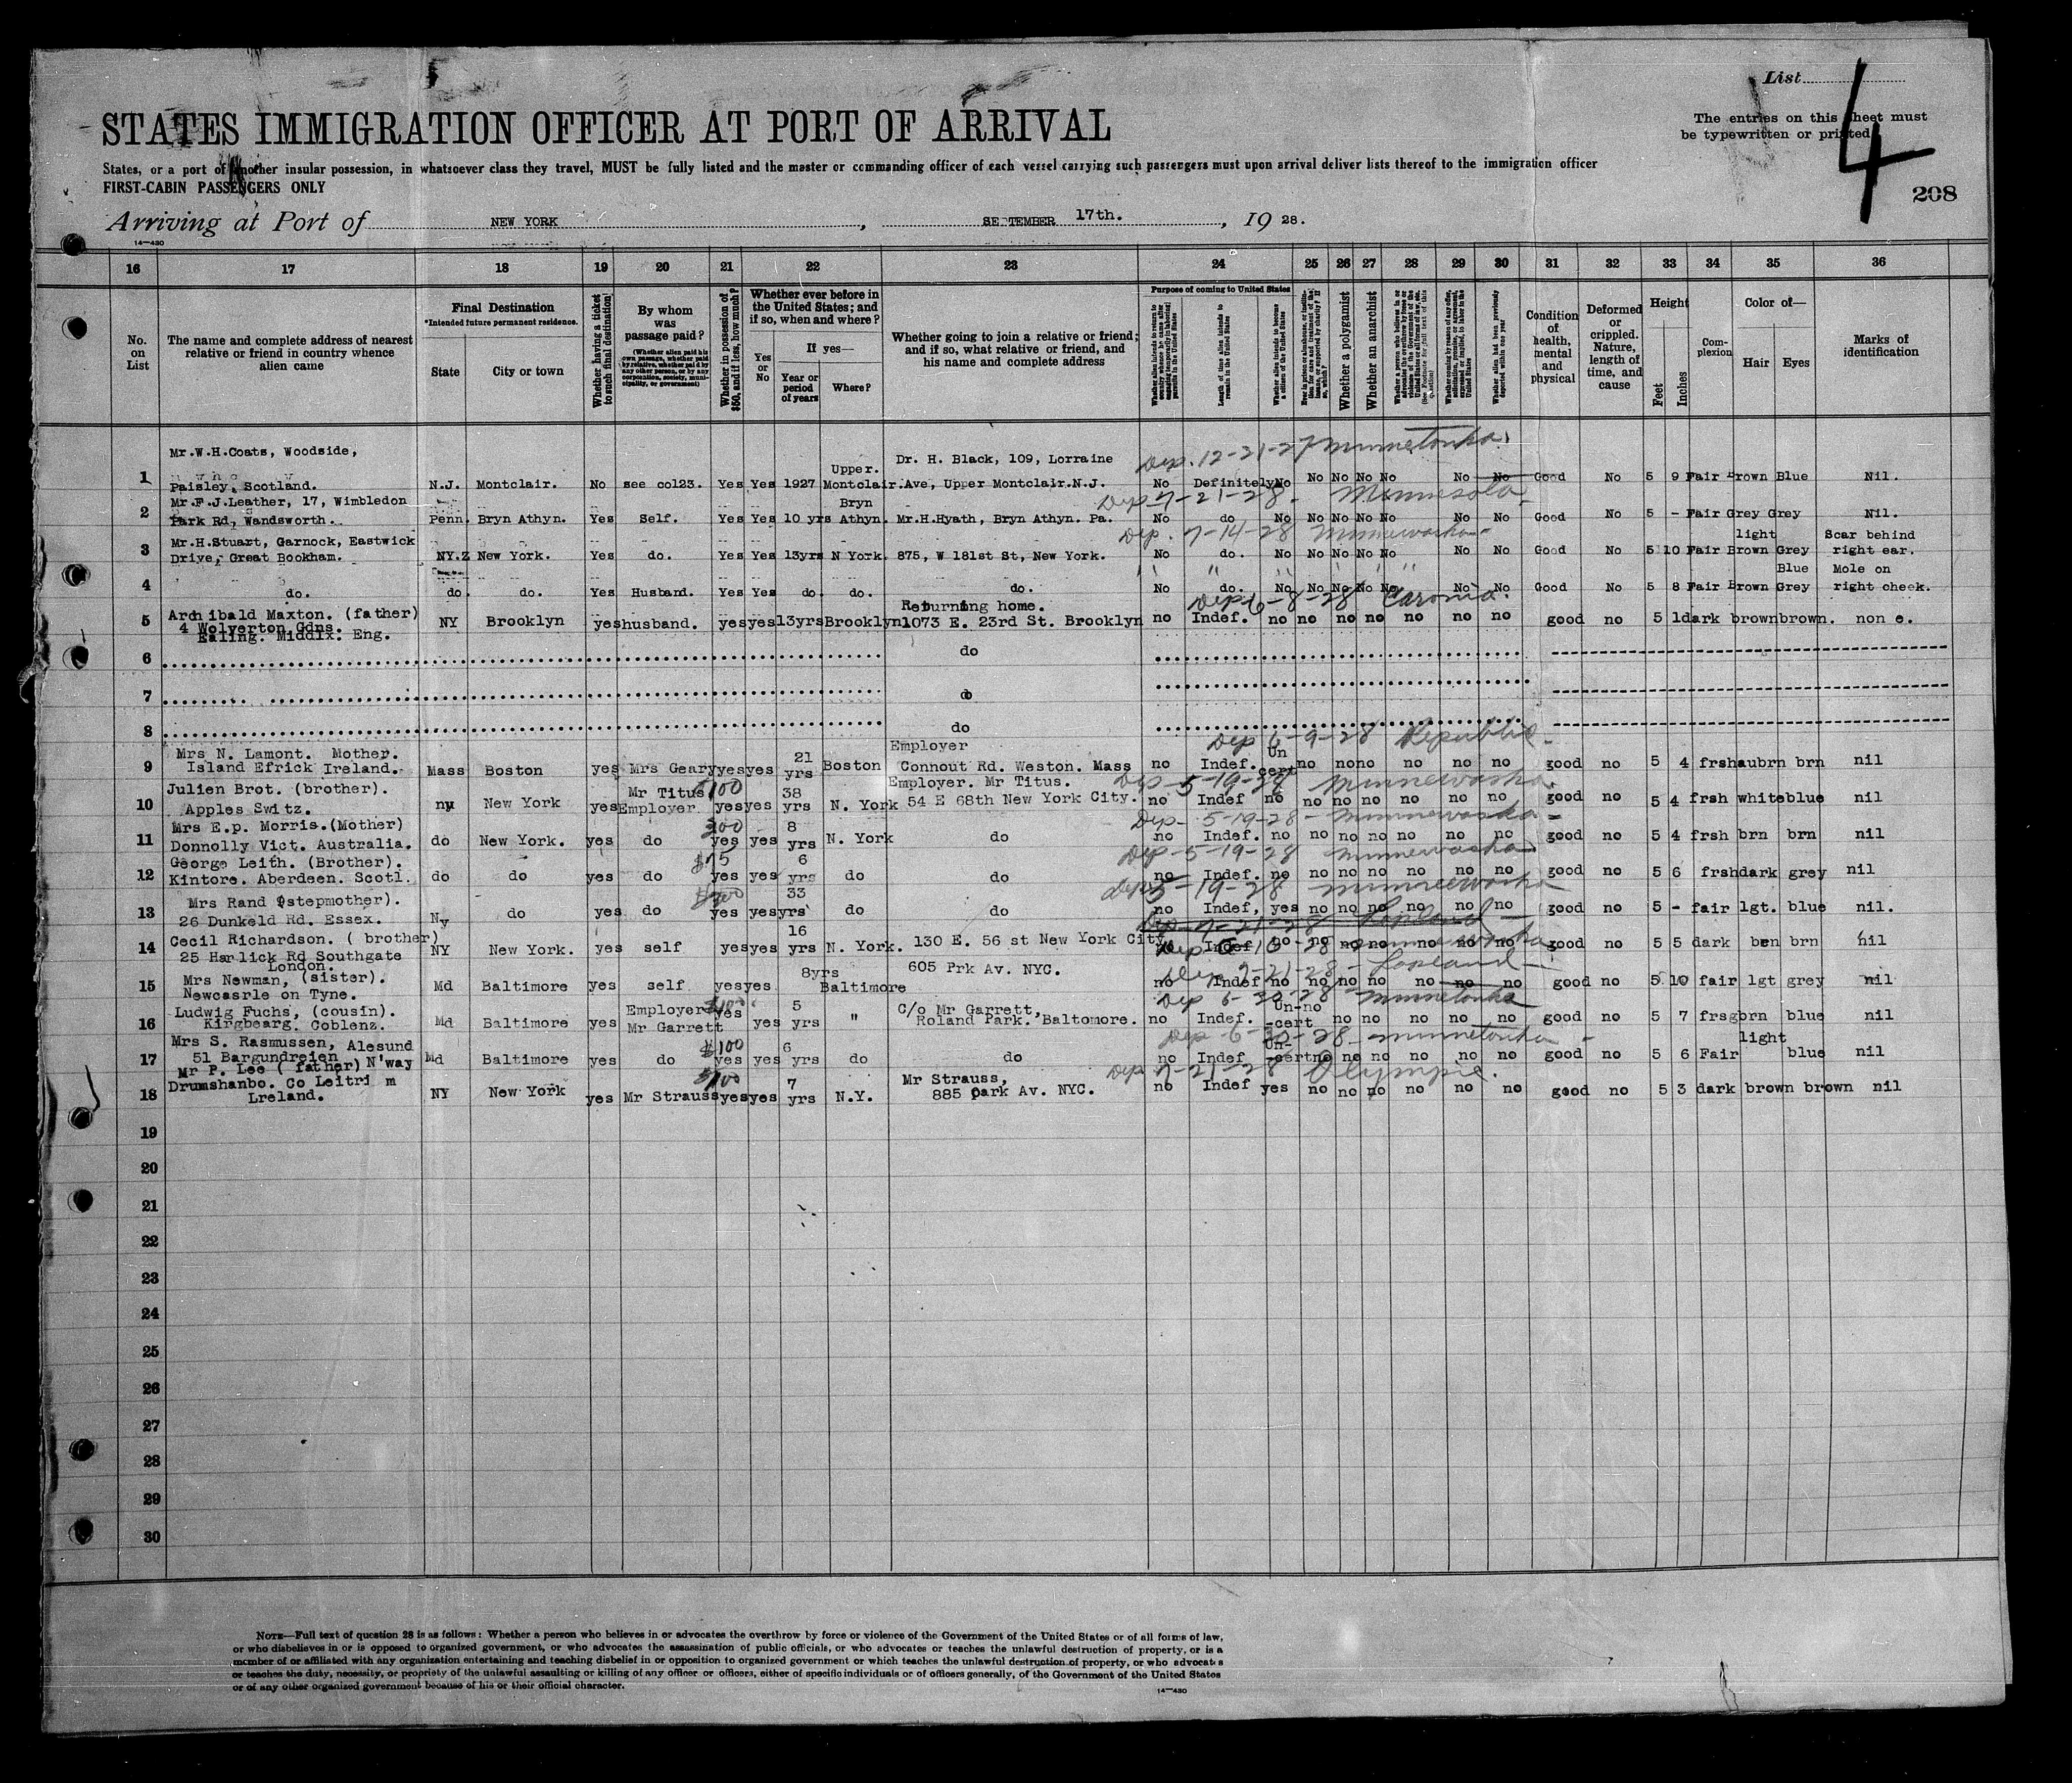 List
The entries on this sheet must
be typewritten or printed
4
208
STATES IMMIGRATION OFFICER AT PORT OF ARRIVAL
States, or a port of another insular possession, in whatsoever class they travel, MUST be fully listed and the master or commanding officer of each vessel carrying such passengers must upon arrival deliver lists thereof to the immigration officer
FIRST-CABIN PASSENGERS ONLY
Arriving at Port of NEW YORK, SEPTEMBER 17th., 19 28.
14—430
16 17 18 19 20 21 22 23 24 25 26 27 28 29 30 31 32 33 34 35 36
No. on List
The name and complete address of nearest relative or friend in country whence alien came
Final Destination
*Intended future permanent residence.
State
City or town
Whether having a ticket to such final destination
By whom was passage paid?
(Whether alien paid his own passage, whether paid by relative, whether paid by any other person, or by any corporation, society, municipality, or government)
Whether in possession of $50, and if less, how much?
Whether ever before in the United States; and if so, when and where?
Yes or No
If yes—
Year or period of years
Where?
Whether going to join a relative or friend; and if so, what relative or friend, and his name and complete address
Purpose of coming to United States
Length of time the alien intends to remain in the United States
Whether alien intends to become a citizen of the United States
Whether a polygamist
Whether an anarchist
Whether alien had been previously deported within one year
Condition of health, mental and physical
Deformed or crippled. Nature, length of time, and cause
Height
Feet
Inches
Complexion
Color of—
Hair
Eyes
Marks of identification
Dep. 12-21-27 Minnetonka.
Mr.W.H.Coats, Woodside, Upper. Dr. H. Black, 109, Lorraine
1 Paisley, Scotland. N.J. Montclair. No see col23. Yes Yes 1927 Montclair. Ave, Upper Montclair.N.J. No Definitely No No No No No No No Good No 5 9 Fair Brown Blue Nil.
Dep 7-21-28 - Minnesota
Mr.F.J.Leather, 17, Wimbledon Bryn
2 Park Rd, Wandsworth. Penn. Bryn Athyn. Yes Self. Yes Yes 10 yrs Athyn. Mr.H.Hyath, Bryn Athyn. Pa. No do No No No No No No No Good No 5 - Fair Grey Grey Nil.
Dep. 7-14-28 Minnewaska
Mr.H.Stuart, Garnock, Eastwick light Scar behind
3 Drive, Great Bookham. NY. New York. Yes do. Yes Yes 13yrs N York. 875, W 181st St, New York. No do. No No No No No No No Good No 5 10 Fair Brown Grey right ear.
Blue Mole on
4 do. do. do. Yes Husband. Yes Yes do. do. do. No do. No No No No No No No Good No 5 8 Fair Brown Grey right cheek.
Dep -8-28 Caronia.
Archibald Maxton. (father) Returning home.
5 4 Wolverton Gdns. NY Brooklyn yes husband. yes yes 13yrs Brooklyn 1073 E. 23rd St. Brooklyn no Indef. no no no no no no no good no 5 1 dark brown brown. non e.
Ealing. Middlx. Eng.
6 do
7 do
8 do
Dep 6-9-28 Republic
Mrs N. Lamont. Mother. 21 Employer Un
9 Island Efrick Ireland. Mass Boston yes Mrs Geary yes yes yrs Boston Connout Rd. Weston. Mass no Indef. cert no no no no no no good no 5 4 frsh aubrn brn nil
Dep 5-19-28 Minnewaska
Julien Brot. (brother). Mr Titus $100 38 Employer. Mr Titus.
10 Apples Switz. ny New York yes Employer. yes yes yrs N. York 54 E 68th New York City. no Indef no no no no no no no good no 5 4 frsh white blue nil
Dep- 5-19-28 - Minnewaska
Mrs E.p. Morris.(Mother) 8
11 Donnolly Vict. Australia. do New York. yes do yes yes yrs N. York do no Indef. no no no no no no no good no 5 4 frsh brn brn nil
Dep-5-19-28 Minnewaska
George Leith. (Brother). $75 6
12 Kintore. Aberdeen. Scotl. do do yes do yes yes yrs do do no Indef. no no no no no no no good no 5 6 frsh dark grey nil
Dep 5-19-28 Minnewaska
Mrs Rand (stepmother). 33
13 26 Dunkeld Rd. Essex. Ny do yes do yes yes yrs do do no Indef, yes no no no no no no good no 5 - fair lgt. blue nil.
Cecil Richardson. ( brother) 16
14 25 Harlick Rd Southgate NY New York. yes self yes yes yrs N. York. 130 E. 56 st New York City Indef no no no no no no no good no 5 5 dark brn brn nil
London.
Dep 7-21-28 - Lapland
Mrs Newman, (sister). 8yrs 605 Prk Av. NYC.
15 Newcasrle on Tyne. Md Baltimore yes self yes yes Baltimore no Indef no no no no no no no good no 5 10 fair lgt grey nil
Dep 6-30-28 - Minnetonka
Ludwig Fuchs, (cousin). Employer $100 5 C/o Mr Garrett, Un-no
16 Kirgbearg. Coblenz. Md Baltimore yes Mr Garrett yes yes yrs " Roland Park. Baltomore. no Indef. -cert no no no no no good no 5 7 frsg brn blue nil
Dep 6-30-28 - Minnetonka -
Mrs S. Rasmussen, Alesund $100 6 Un- light
17 51 Bargundreien N'way Md Baltimore yes do yes yes yrs do do no Indef -cert no no no no no no good no 5 6 Fair blue nil
Dep 7-21-28 Olympic.
Mr P. Lee ( father) $100 7 Mr Strauss,
18 Drumshanbo. Co Leitri m NY New York yes Mr Strauss yes yes yrs N.Y. 885 park Av. NYC. no Indef yes no no no no no no good no 5 3 dark brown brown nil
Lreland.
19
20
21
22
23
24
25
26
27
28
29
30
NOTE—Full text of question 28 is as follows: Whether a person who believes in or advocates the overthrow by force or violence of the Government of the United States or of all forms of law,
or who disbelieves in or is opposed to organized government, or who advocates the assassination of public officials, or who advocates or teaches the unlawful destruction of property, or is a
member of or affiliated with any organization entertaining and teaching disbelief in or opposition to organized government or which teaches the unlawful destruction of property, or who advocates
or teaches the duty, necessity, or propriety of the unlawful assaulting or killing of any officer or officers, either of specific individuals or of officers generally, of the Government of the United States
or of any other organized government because of his or their official character.
14—430